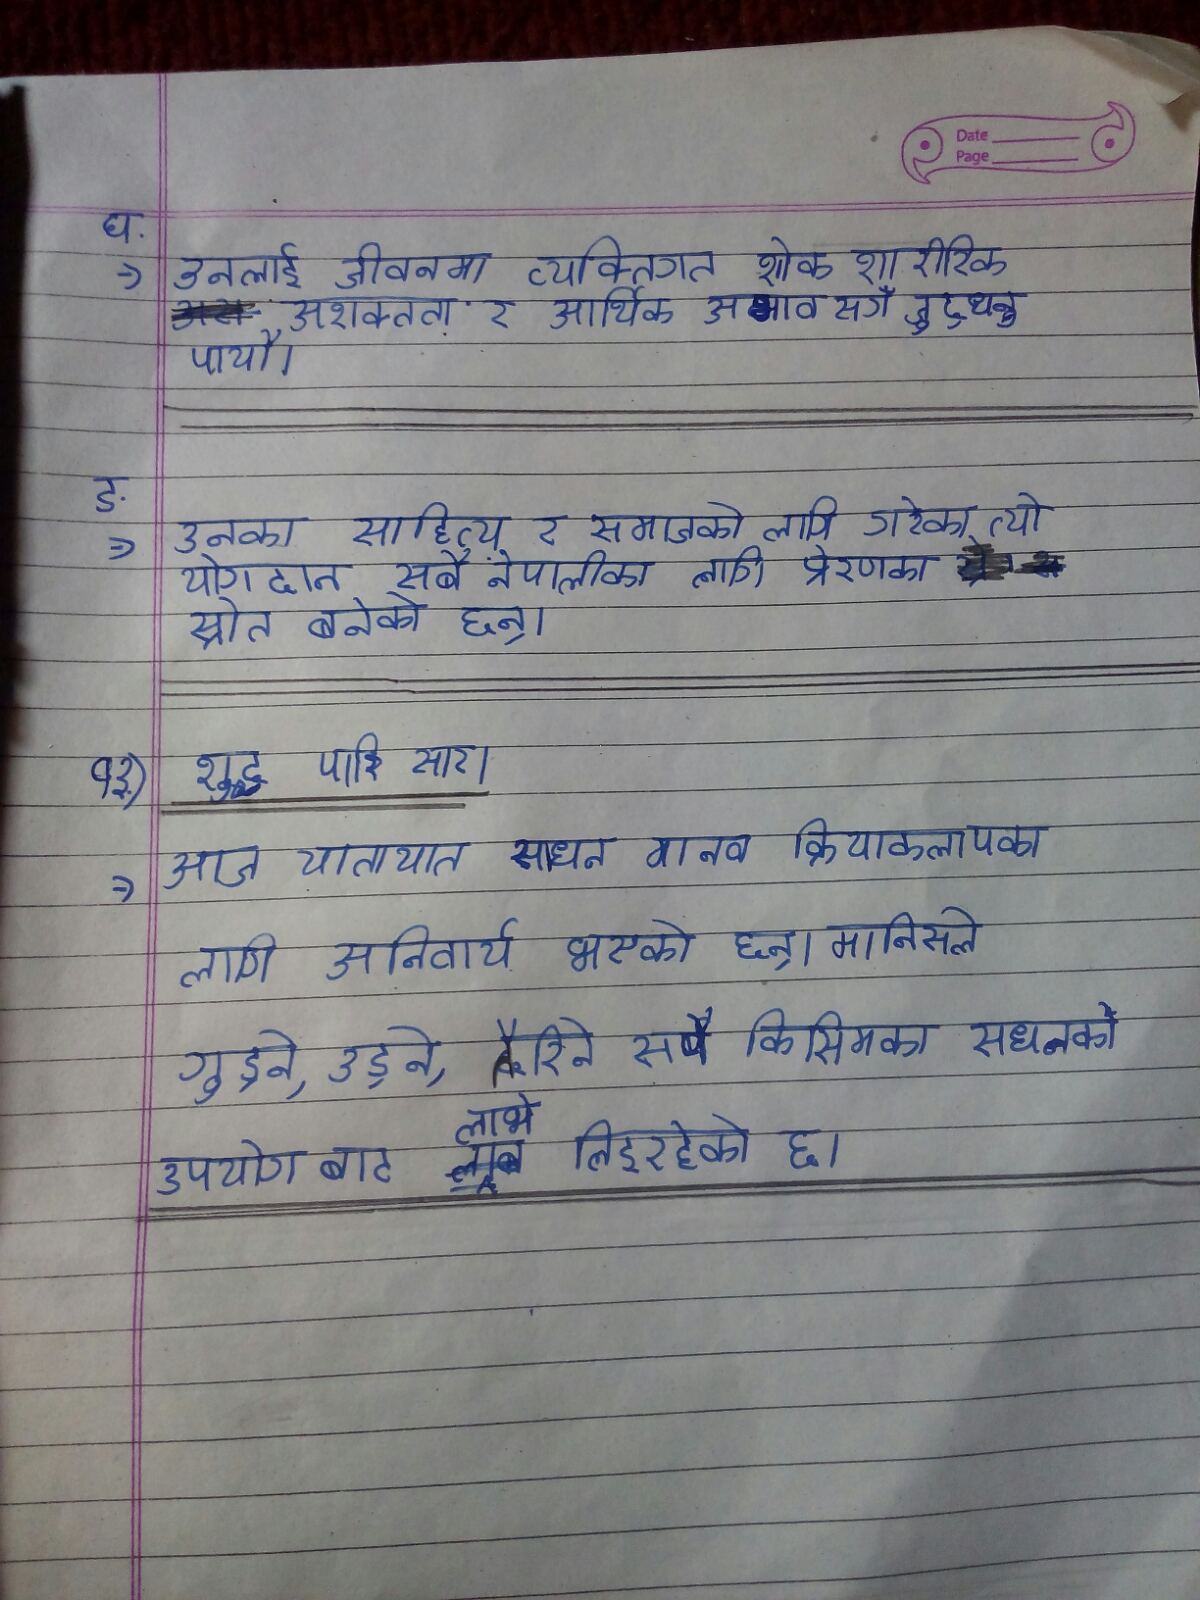 Date
Page
घ.
⇒ उनलाई जीवनमा व्यक्तिगत शोक शारीरिक
अशक्तता र आर्थिक अभाव सगँ जुद्धनु
पायौ।
ङ.
⇒ उनका साहित्य र समाजको लागि गरेका त्यो
योगदान सबै नेपालीका लागि प्रेरणका
स्रोत बनेको छन्।
१३) शुद्ध पारि सार।
⇒ आज यातायात साधन मानव क्रियाकलापका
लागि अनिवार्य भएको छन्। मानिसले
गुड्ने, उड्ने, तैरिने सबै किसिमका सधनको
उपयोग बाट लाभ लिइरहेको छ।